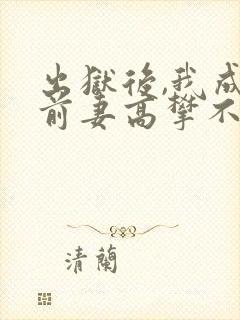 出獄後,我成
前妻高攀不
清蘭